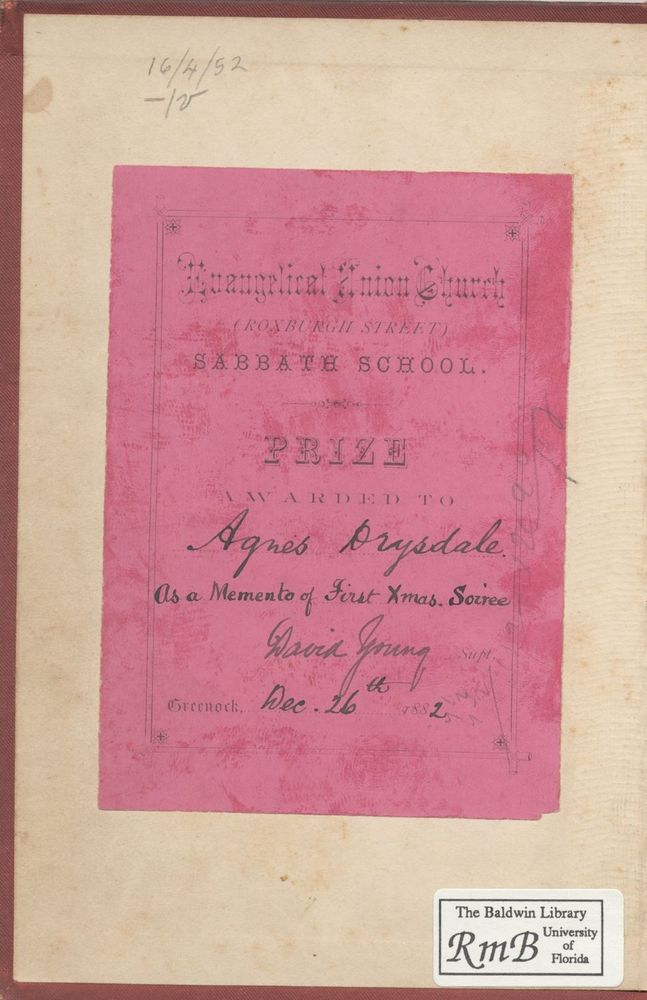 16/4/52
-/v
Evangelical Union Church
(ROXBURGH STREET)
SABBATH SCHOOL.
PRIZE
AWARDED TO
Agnes Drysdale.
As a Memento of First Xmas. Soiree
David Young Supt.
Greenock, Dec. 26th 1882
The Baldwin Library
RmB University
of
Florida